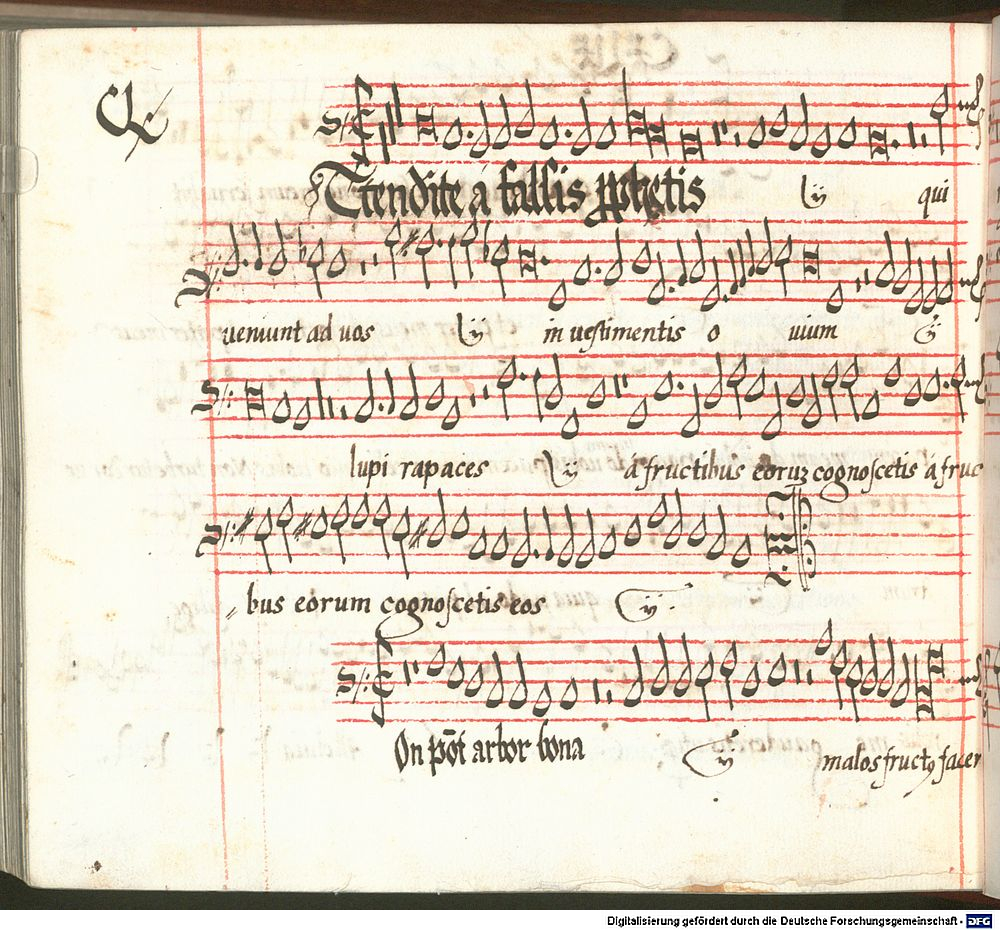 Ttendite á falsis pphetis ij qui
veniunt ad vos ij in vestimentis o vium ij
lupi rapaces ij a fructibus eoruz cognoscetis a fruc
bus eorum cognoscetis eos ij
On pōt arbor bona ij malos fructꝰ facer
Digitalisierung gefördert durch die Deutsche Forschungsgemeinschaft - DFG